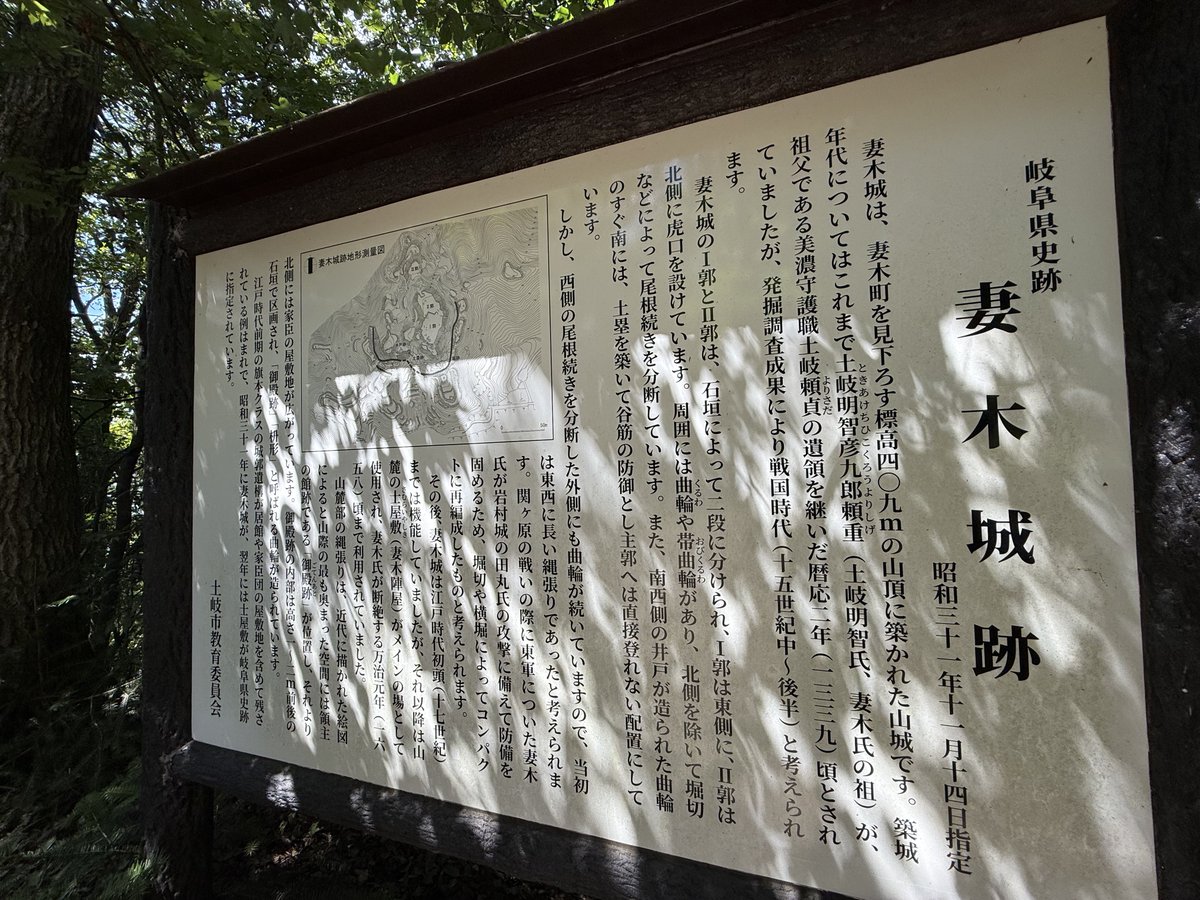 岐阜県史跡
妻木城跡
昭和三十一年十一月十四日指定
妻木城は、妻木町を見下ろす標高四〇九mの山頂に築かれた山城です。築城
年代についてはこれまで土岐明智彦九郎頼重（土岐明智氏、妻木氏の祖）が、
ときあけちひこくろうよりしげ
祖父である美濃守護職土岐頼貞の遺領を継いだ暦応二年（一三三九）頃とされ
よりさだ
ていましたが、発掘調査成果により戦国時代（十五世紀中～後半）と考えられ
ます。
妻木城のⅠ郭とⅡ郭は、石垣によって二段に分けられ、Ⅰ郭は東側に、Ⅱ郭は
北側に虎口を設けています。周囲には曲輪や帯曲輪があり、北側を除いて堀切
くるわ
おびくるわ
などによって尾根続きを分断しています。また、南西側の井戸が造られた曲輪
のすぐ南には、土塁を築いて谷筋の防御とし主郭へは直接登れない配置にして
います。
しかし、西側の尾根続きを分断した外側にも曲輪が続いていますので、当初
は東西に長い縄張りであったと考えられま
す。関ヶ原の戦いの際に東軍についた妻木
氏が岩村城の田丸氏の攻撃に備えて防備を
固めるため、堀切や横堀によってコンパク
トに再編成したものと考えられます。
その後、妻木城は江戸時代初頭（十七世紀）
までは機能していましたが、それ以降は山
麓の士屋敷（妻木陣屋）がメインの場として
使用され、妻木氏が断絶する万治元年（一六
五八）頃まで利用されていました。
山麓部の縄張りは、近代に描かれた絵図
によると山際の最も奥まった空間には領主
の館跡である「御殿跡」が位置し、それより
妻木城跡地形測量図
北側には家臣の屋敷地が広がっています。御殿跡の内部は高さ一～二m前後の
石垣で区画され、「御殿跡」「枡形」と呼ばれる曲輪が造られています。
江戸時代前期の旗本クラスの城郭遺構が居館や家臣団の屋敷地を含めて残さ
れている例はまれで、昭和三十一年に妻木城が、翌年には士屋敷が岐阜県史跡
に指定されています。
土岐市教育委員会